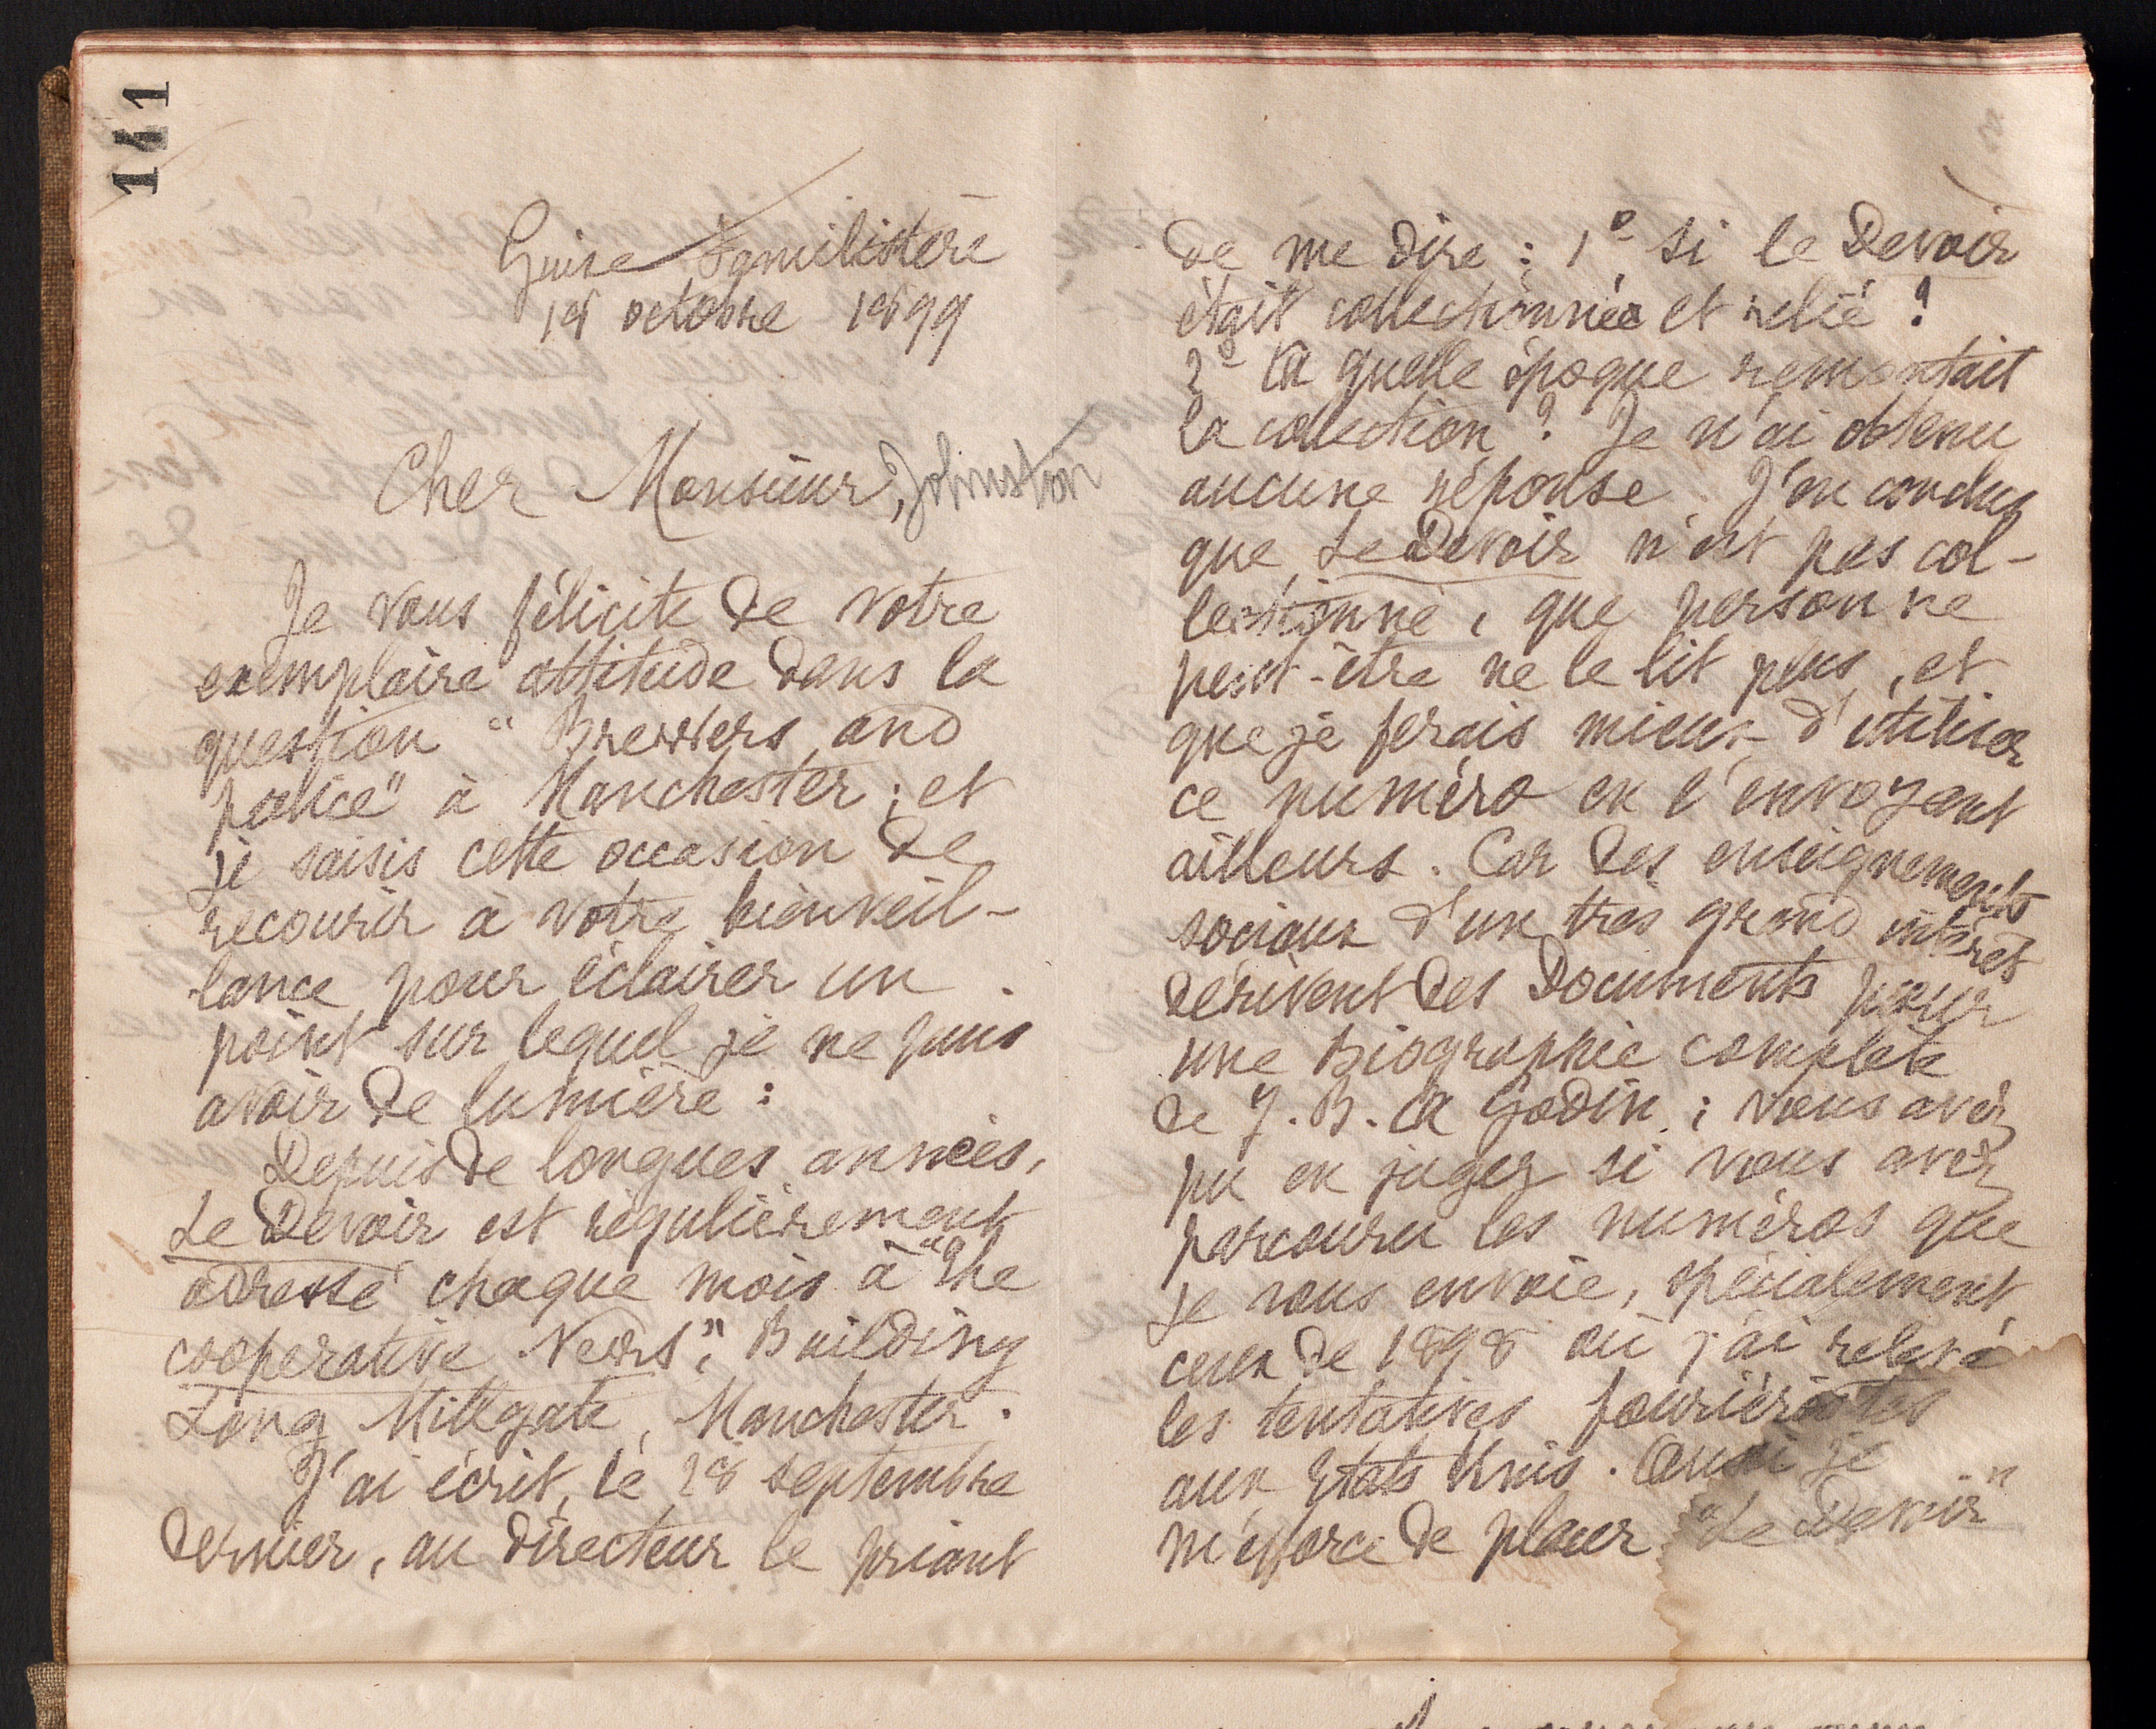 141
Guise Familistère
18 octobre 1899
Cher Monsieur, Johnston
Je vous félicite de votre
exemplaire attitude dans la
question " Brewers and
police" à Manchester ; et
je saisis cette occasion de
recourir à votre bienveil-
lance pour éclairer un
point sur lequel je ne puis
avoir de lumière :
Depuis de longues années,
Le Devoir est régulièrement
adressé chaque mois à "The
cooperative News", Building
Long Millgate, Manchester.
J'ai écrit, le 28 septembre
dernier, au directeur le priant
de me dire : 1º si le Devoir
était collectionné et relié ?
2º à quelle époque remontait
la collection ? Je n'ai obtenu
aucune réponse. J'en conclus
que Le Devoir n'est pas col-
lectionné, que personne
peut-être ne le lit plus, et
que je ferais mieux d'utiliser
ce numéro en l'envoyant
ailleurs. Car des enseignements
sociaux d'un très grand intérêt
dérivent des Documents pour
une Biographie complète
de J. B. A Godin ; vous avez
pu en juger si vous avez
parcouru les numéros que
je vous envoie, spécialement
ceux de 1898 où j'ai relevé
les tentatives fouriéristes
aux Etats Unis. Aussi je
m'efforce de placer "Le Devoir"